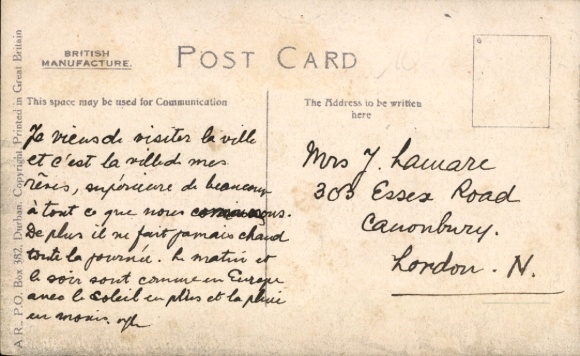 BRITISH
MANUFACTURE.
POST CARD
This space may be used for Communication
The Address to be written
here
A.R., P.O. Box 382, Durban. Copyright. Printed in Great Britain
Je viens de visiter la ville
et c'est la ville de mes
rêves, supérieure de beaucoup
à tout ce que nous connaissons.
De plus il ne fait jamais chaud
toute la journée. Le matin et
le soir sont comme en Europe
avec le soleil en plus et la pluie
en moins.
Mrs J. Lamare
303 Essex Road
Canonbury.
London. N.